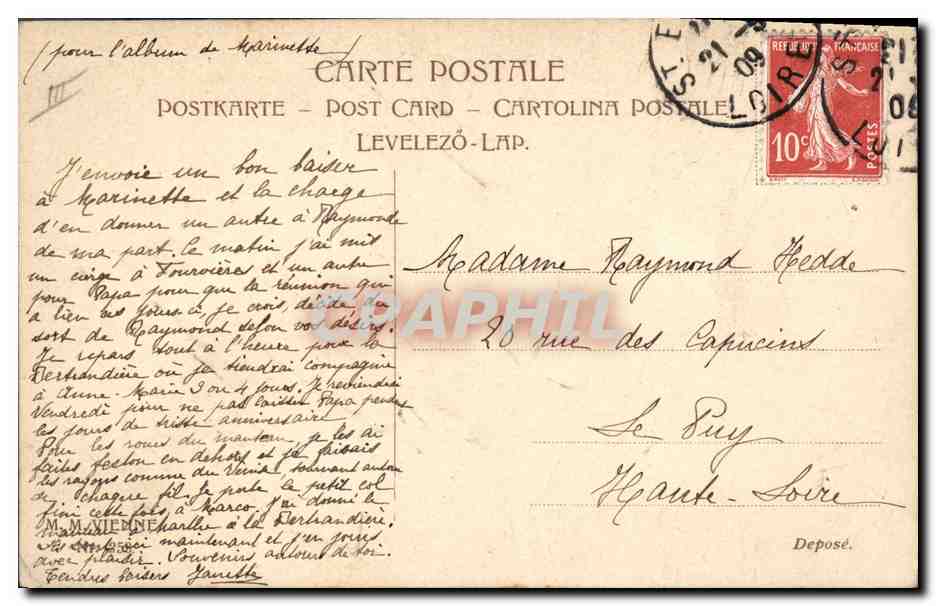 (pour l'album de Marinette)
III
CARTE POSTALE
POSTKARTE – POST CARD – CARTOLINA POSTALE
LEVELEZŐ-LAP.
ST-E
21
09
LOIRE
REPUBLIQUE FRANÇAISE
10c
POSTES
J'envoie un bon baiser
à Marinette et la charge
d'en donner un autre à Raymonde
de ma part. Le matin j'ai mis
un cierge à Fourvières et un autre
pour Papa pour que la réunion qui
a lieu ces jours-ci, je crois, décide du
sort de Raymond selon vos désirs.
Je repars tout à l'heure pour la
Bertrandière où je tiendrai compagnie
à Anne-Marie 3 ou 4 jours. Je reviendrai
Vendredi pour ne pas laisser Papa pendant
les jours de triste anniversaire
Pour les roues du manteau, je les ai
faites feston en dehors et je faisais
les rayons comme du Venise tournant autour
de chaque fil. Je porte le petit col
fini cette fois, à Marco. J'ai donné le
à Marthe à la Bertrandière.
ici maintenant et j'en jouis
avec plaisir. Souvenirs autour de toi.
Tendres baisers Janette
M. M. VIENNE
Nr.
Madame Raymond Hedde
20 rue des Capucins
Le Puy
Haute-Loire
Deposé.
CPAPHIL